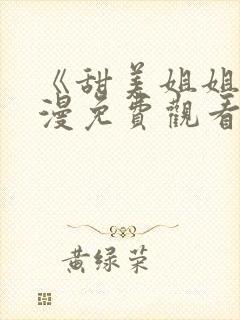 《甜美姐姐
漫免費觀看
黄绿荣